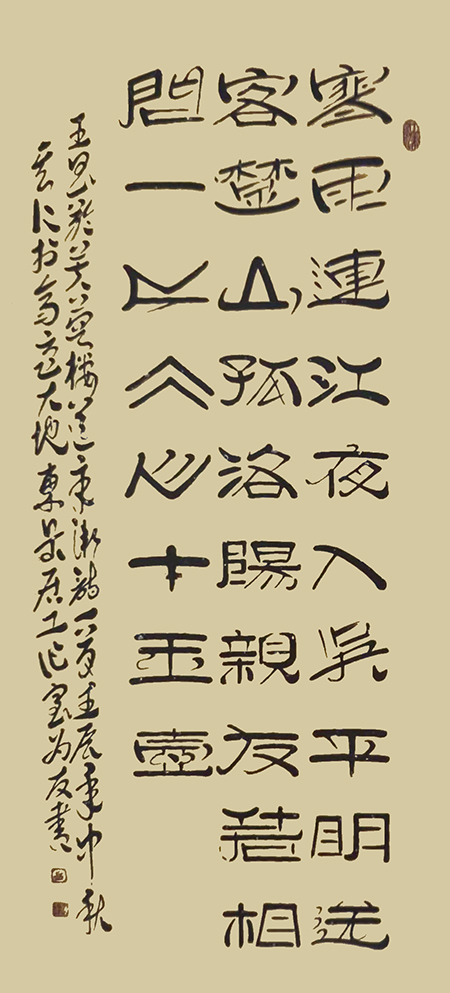 寒雨連江夜入吳平明送
客楚山孤洛陽親友若相
問一片冰心在玉壺
王昌齡芙蓉樓送辛漸詩一首壬辰年中秋
大地東景居工作室为友書